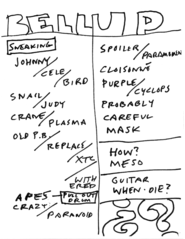 BELLUP
SNEAKING
JOHNNY/
CELE/
BIRD
SNAIL/
JUDY
CRANE/
PLASMA
OLD P.B./
REPLACE/
XTC
WITH
ERED
APES
CRAZY/
PARANOID
PULL OUT
DRUM
SPOILER/
PARAMENIA
CLOISONNE
PURPLE/
CYCLOPS
PROBABLY
CAREFUL
MASK
HOW?
MESO
GUITAR
WHEN DIE?